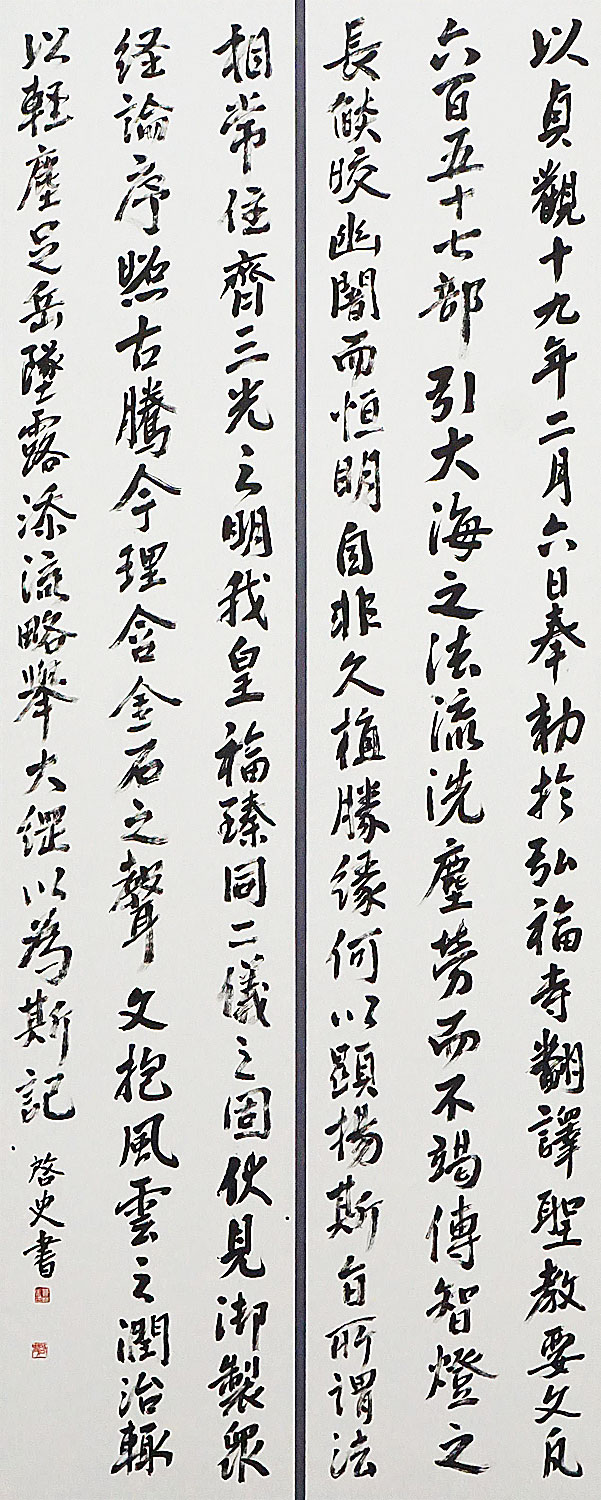 以貞觀十九年二月六日奉勅於弘福寺翻譯聖教要文凡
六百五十七部引大海之法流洗塵勞而不竭傳智燈之
長燄皎幽闇而恒明自非久植勝緣何以顯揚斯旨所謂法
相常住齊三光之明我皇福臻同二儀之固伏見御製眾
経論序照古騰今理含金石之聲文抱風雲之潤治輙
以軽塵足岳墜露添流略舉大綱以為斯記
啓史書